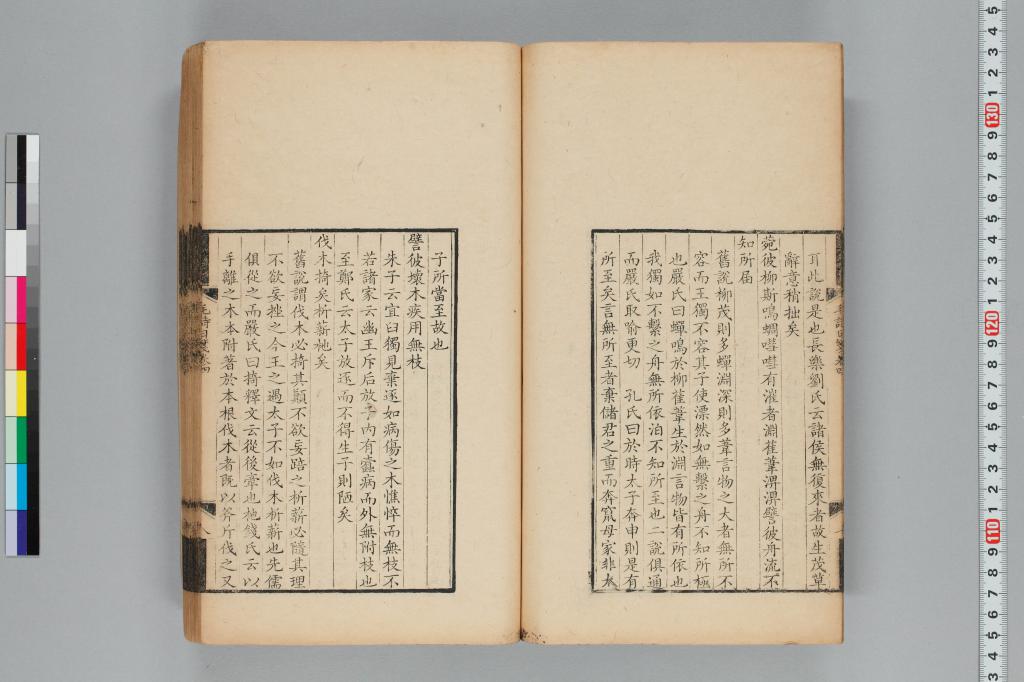 耳此說是也長樂劉氏云諸侯無復來者故生茂草
辭意稍拙矣
菀彼柳斯鳴蜩嘒嘒有漼者淵萑葦淠淠譬彼舟流不
知所屆
舊說柳茂則多蟬淵深則多葦言物之大者無所不
容而王獨不容其子使漂然如無繫之舟不知所極
也嚴氏曰蟬鳴於柳萑葦生於淵言物皆有所依也
我獨如不繫之舟無所依泊不知所至也二說俱通
而嚴氏取喻更切 孔氏曰於時太子奔申則是有
所至矣言無所至者棄儲君之重而奔竄母家非太
子所當至故也
譬彼壞木疾用無枝
朱子云宜臼獨見棄逐如病傷之木憔悴而無枝不
若諸家云幽王斥后放子內有蠹病而外無附枝也
至鄭氏云太子放逐而不得生子則陋矣
伐木掎矣析薪杝矣
舊說謂伐木必掎其顛不欲妄踣之析薪必隨其理
不欲妄挫之今王之遇太子不如伐木析薪也先儒
俱從之而嚴氏曰掎釋文云從後牽也杝錢氏云以
手離之木本附著於本根伐木者既以斧斤伐之又
毛詩日箋卷四
八